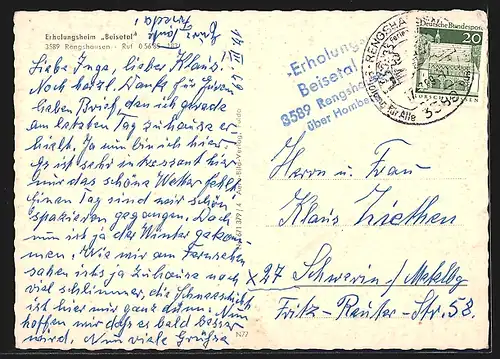 Erholungsheim „Beisetal“
3589 Rengshausen · Ruf 0 56 85
14. III. 69
Liebe Inge, lieber Klaus!
Noch herzl. Dank für Euren
lieben Brief, den ich gerade
am letzten Tag zuhause er-
hielt. Ja nun bin ich hier.
Es ist sehr interessant hier
nur das schöne Wetter fehlt.
Einen Tag sind wir schön
spazieren gegangen. Doch
nun ist ja der Winter gekom-
men. Wie wir am Fernsehen
sahen ists ja zuhause noch
viel schlimmer, die Schneeschicht
ist hier nur ganz dünn. Nun
hoffen wir daß es bald besser
wird. Nun viele Grüße
Eure Tante
Frieda!
N77
Erholungs
Beisetal
3589 Rengsha
über Homberg
RENGSHAUSEN
Erholung für Alle
3589
Deutsche Bundespost
20
Herrn u. Frau
Klaus Ziethen
x 27 Schwerin / Mcklbg
Fritz-Reuter-Str. 58.